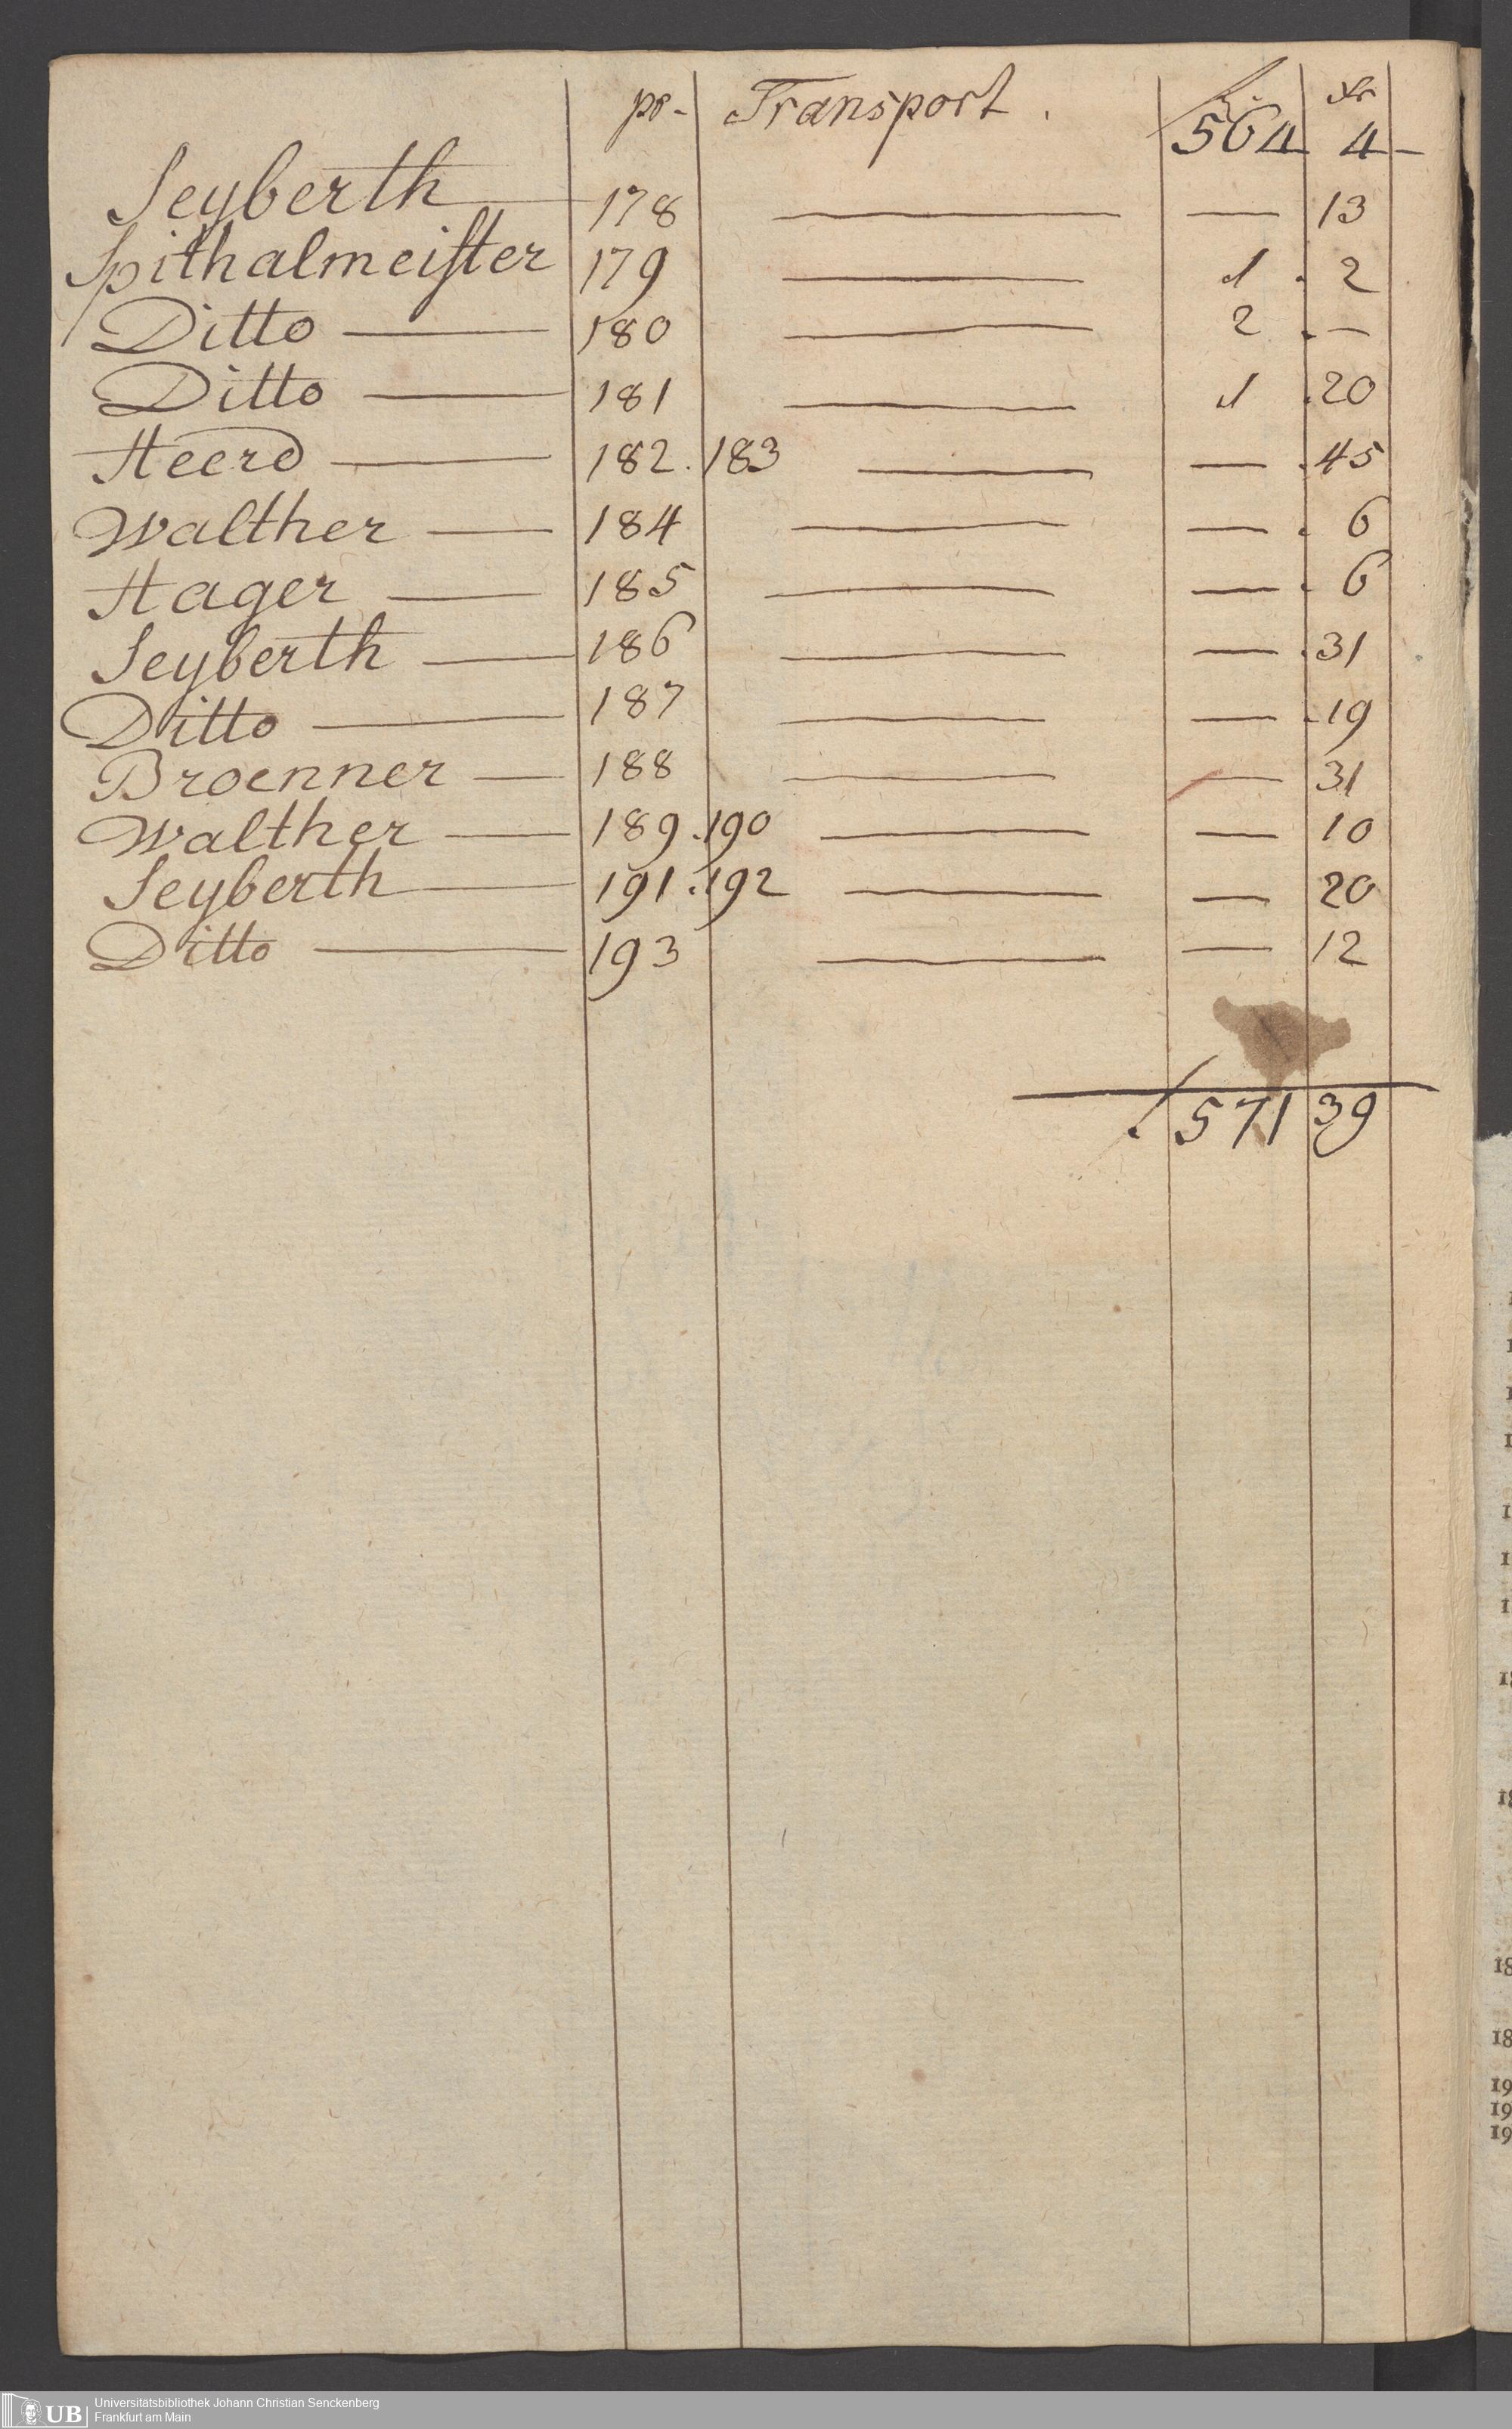 pr. Transport. fl. xr
564 4
Seyberth 178 — — 13
Spithalmeister 179 — 1. 2
Ditto — 180 — 2. —
Ditto — 181 — 1. 20
Heerd — 182. 183 — —. 45
Walther — 184 — —. 6
Hager — 185 — —. 6
Seyberth — 186 — —. 31
Ditto — 187 — —. 19
Broenner — 188 — — 31
Walther — 189. 190 — — 10
Seyberth — 191. 192 — — 20
Ditto — 193 — — 12
571 39
1
1
1
1
1
1
1
18
18
18
18
19
19
19
UB Universitätsbibliothek Johann Christian Senckenberg
Frankfurt am Main